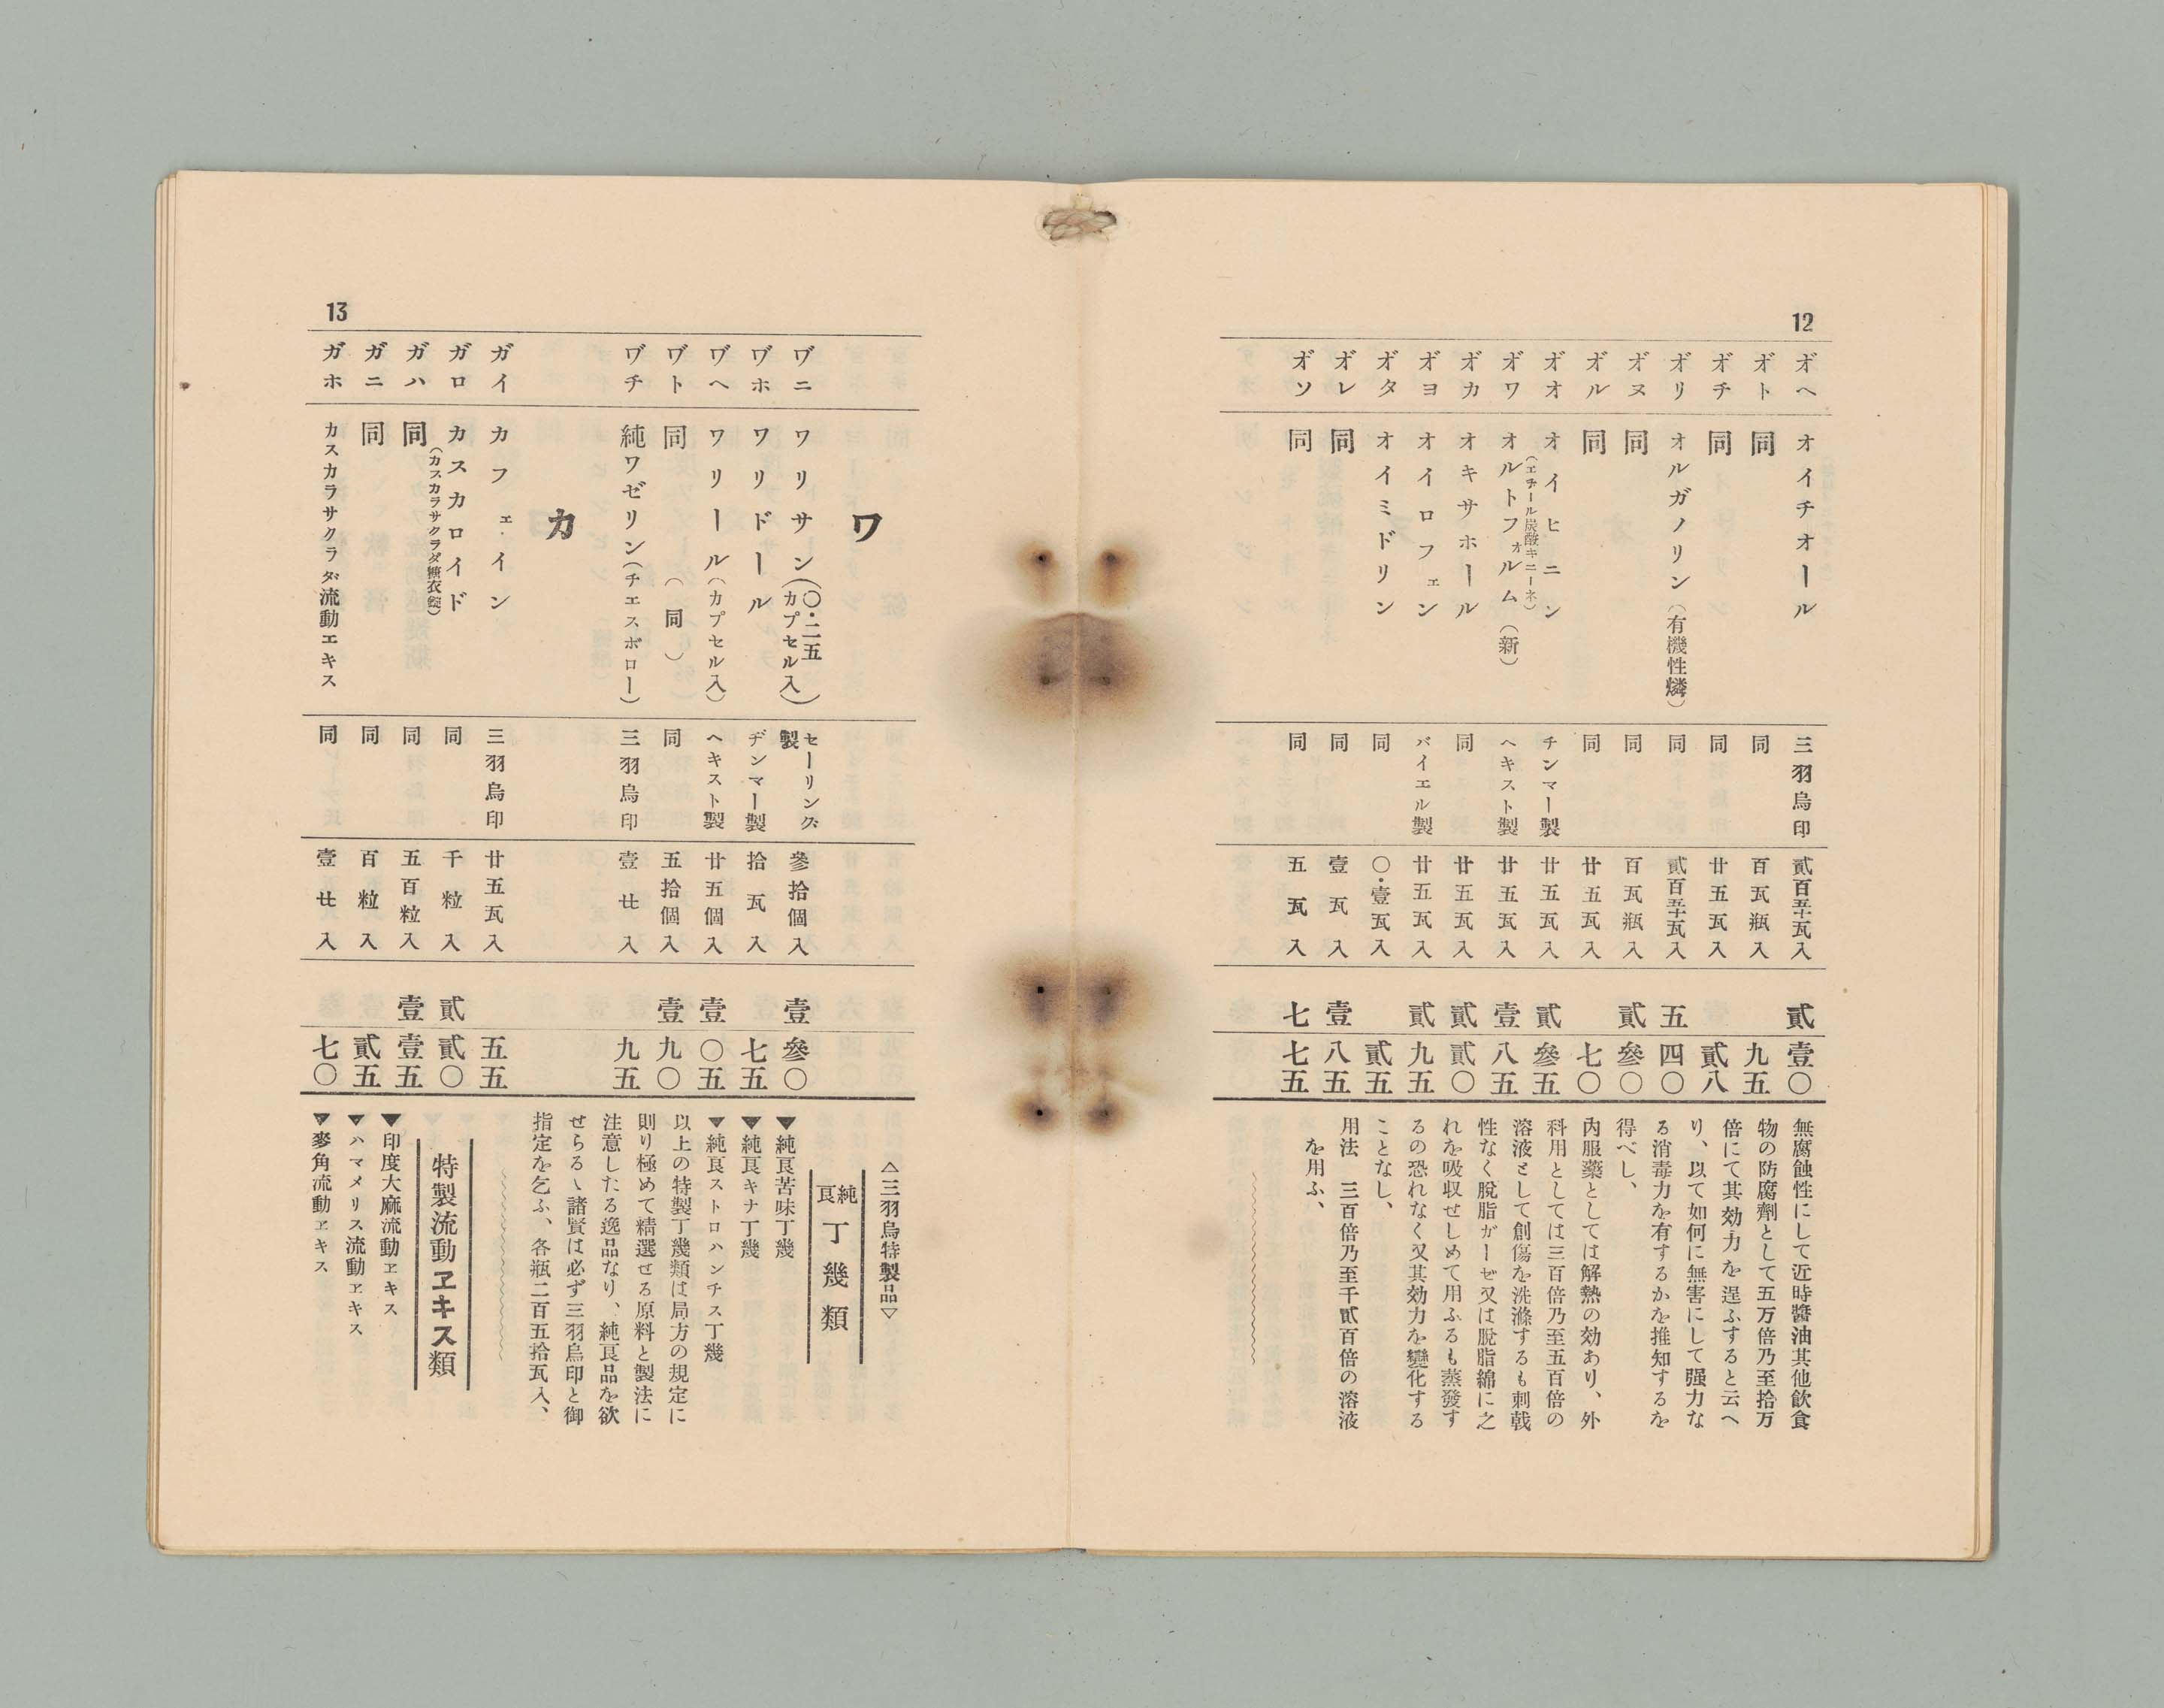 12
ヺヘ オイチオール 三羽烏印 貳百五十瓦入 貳 壹〇
ヺト 同 同 百瓦瓶入 九五
ヺチ 同 同 廿五瓦入 貳八
ヺリ オルガノリン(有機性燐) 同 貳百五十瓦入 五 四〇
ヺヌ 同 同 百瓦瓶入 貳 參〇
ヺル 同 同 廿五瓦入 七〇
ヺオ オイヒニン(エチール炭酸キニーネ) チンマー製 廿五瓦入 貳 參五
ヺワ オルトフォルム(新) ヘキスト製 廿五瓦入 壹 八五
ヺカ オキサホール 同 廿五瓦入 貳 貳〇
ヺヨ オイロフェン バイエル製 廿五瓦入 貳 九五
ヺタ オイミドリン 同 〇・壹瓦入 貳五
ヺレ 同 同 壹瓦入 壹 八五
ヺソ 同 同 五瓦入 七 七五
無腐蝕性にして近時醬油其他飮食
物の防腐劑として五万倍乃至拾万
倍にて其効力を逞ふすると云へ
り、以て如何に無害にして强力な
る消毒力を有するかを推知するを
得べし、
内服藥としては解熱の効あり、外
科用としては三百倍乃至五百倍の
溶液として創傷を洗滌するも刺戟
性なく脫脂ガーゼ又は脫脂綿に之
れを吸收せしめて用ふるも蒸發す
るの恐れなく又其効力を變化する
ことなし、
用法 三百倍乃至千貳百倍の溶液
を用ふ、
13
ワ
ヷニ ワリサン(〇・二五カプセル入) セーリング製 參拾個入 壹 參〇
ヷホ ワリドール ヂンマー製 拾瓦入 七五
ヷヘ ワリール(カプセル入) ヘキスト製 廿五個入 壹 〇五
ヷト 同(同) 同 五拾個入 壹 九〇
ヷチ 純ワゼリン(チエスボロー) 三羽烏印 壹𠀋入 九五
カ
ガイ カフェイン 三羽烏印 廿五瓦入 五五
ガロ カスカロイド(カスカラサクラダ糖衣錠) 同 千粒入 貳 貳〇
ガハ 同 同 五百粒入 壹 壹五
ガニ 同 同 百粒入 貳五
ガホ カスカラサクラダ流動エキス 同 壹𠀋入 七〇
△三羽烏特製品▽
純良 丁幾類
▼純良苦味丁幾
▼純良キナ丁幾
▼純良ストロハンチス丁幾
以上の特製丁幾類は局方の規定に
則り極めて精選せる原料と製法に
注意したる逸品なり、純良品を欲
せらるゝ諸賢は必ず三羽烏印と御
指定を乞ふ、各瓶二百五拾瓦入、
特製流動ヱキス類
▼印度大麻流動ヱキス
▼ハマメリス流動ヱキス
▼麥角流動ヱキス